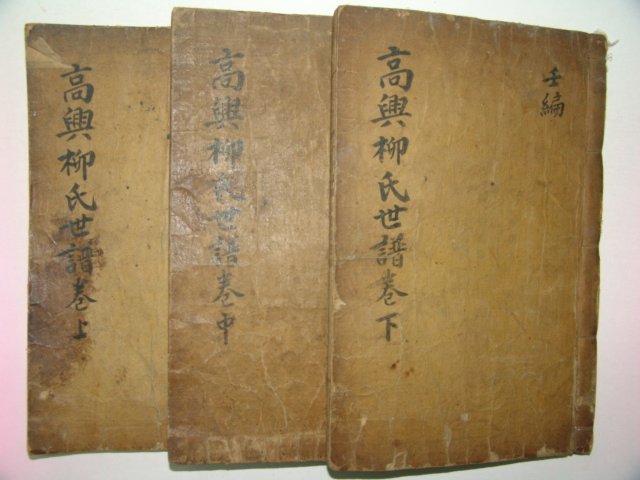 高興柳氏世譜卷上
高興柳氏世譜卷中
高興柳氏世譜卷下
壬編